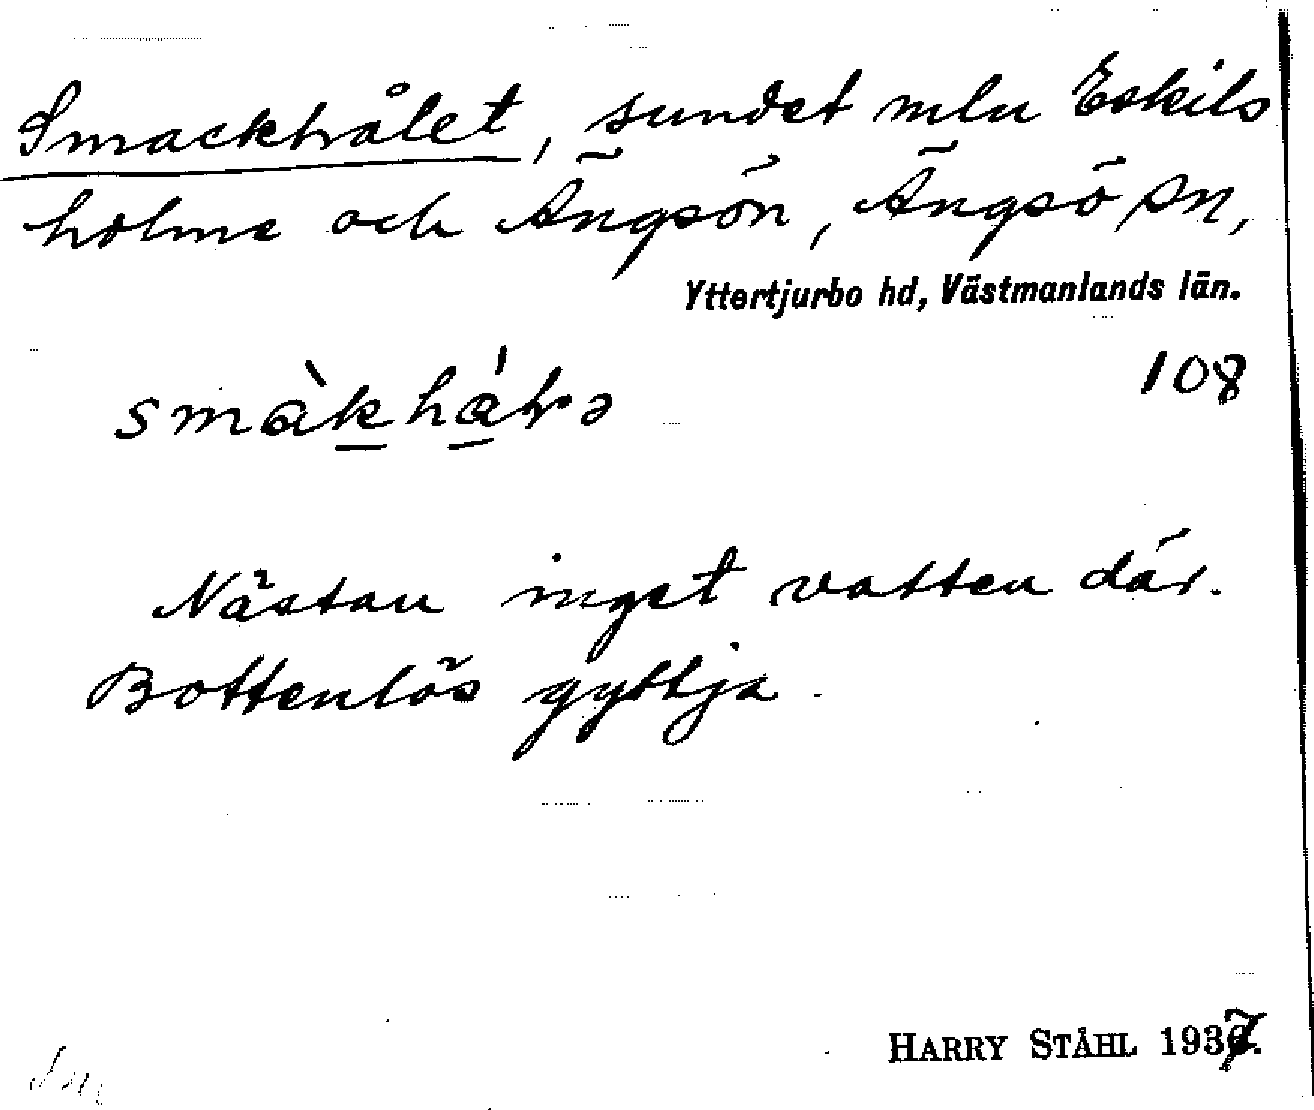 Smackhålet, sundet mlu Eskils
holme och Ängsön, Ängsö sn,
Yttertjurbo hd, Västmanlands län.
108
Nästan inget vatten där.
Bottenlös gyttja.
HARRY STÅHL 1937.
Sm